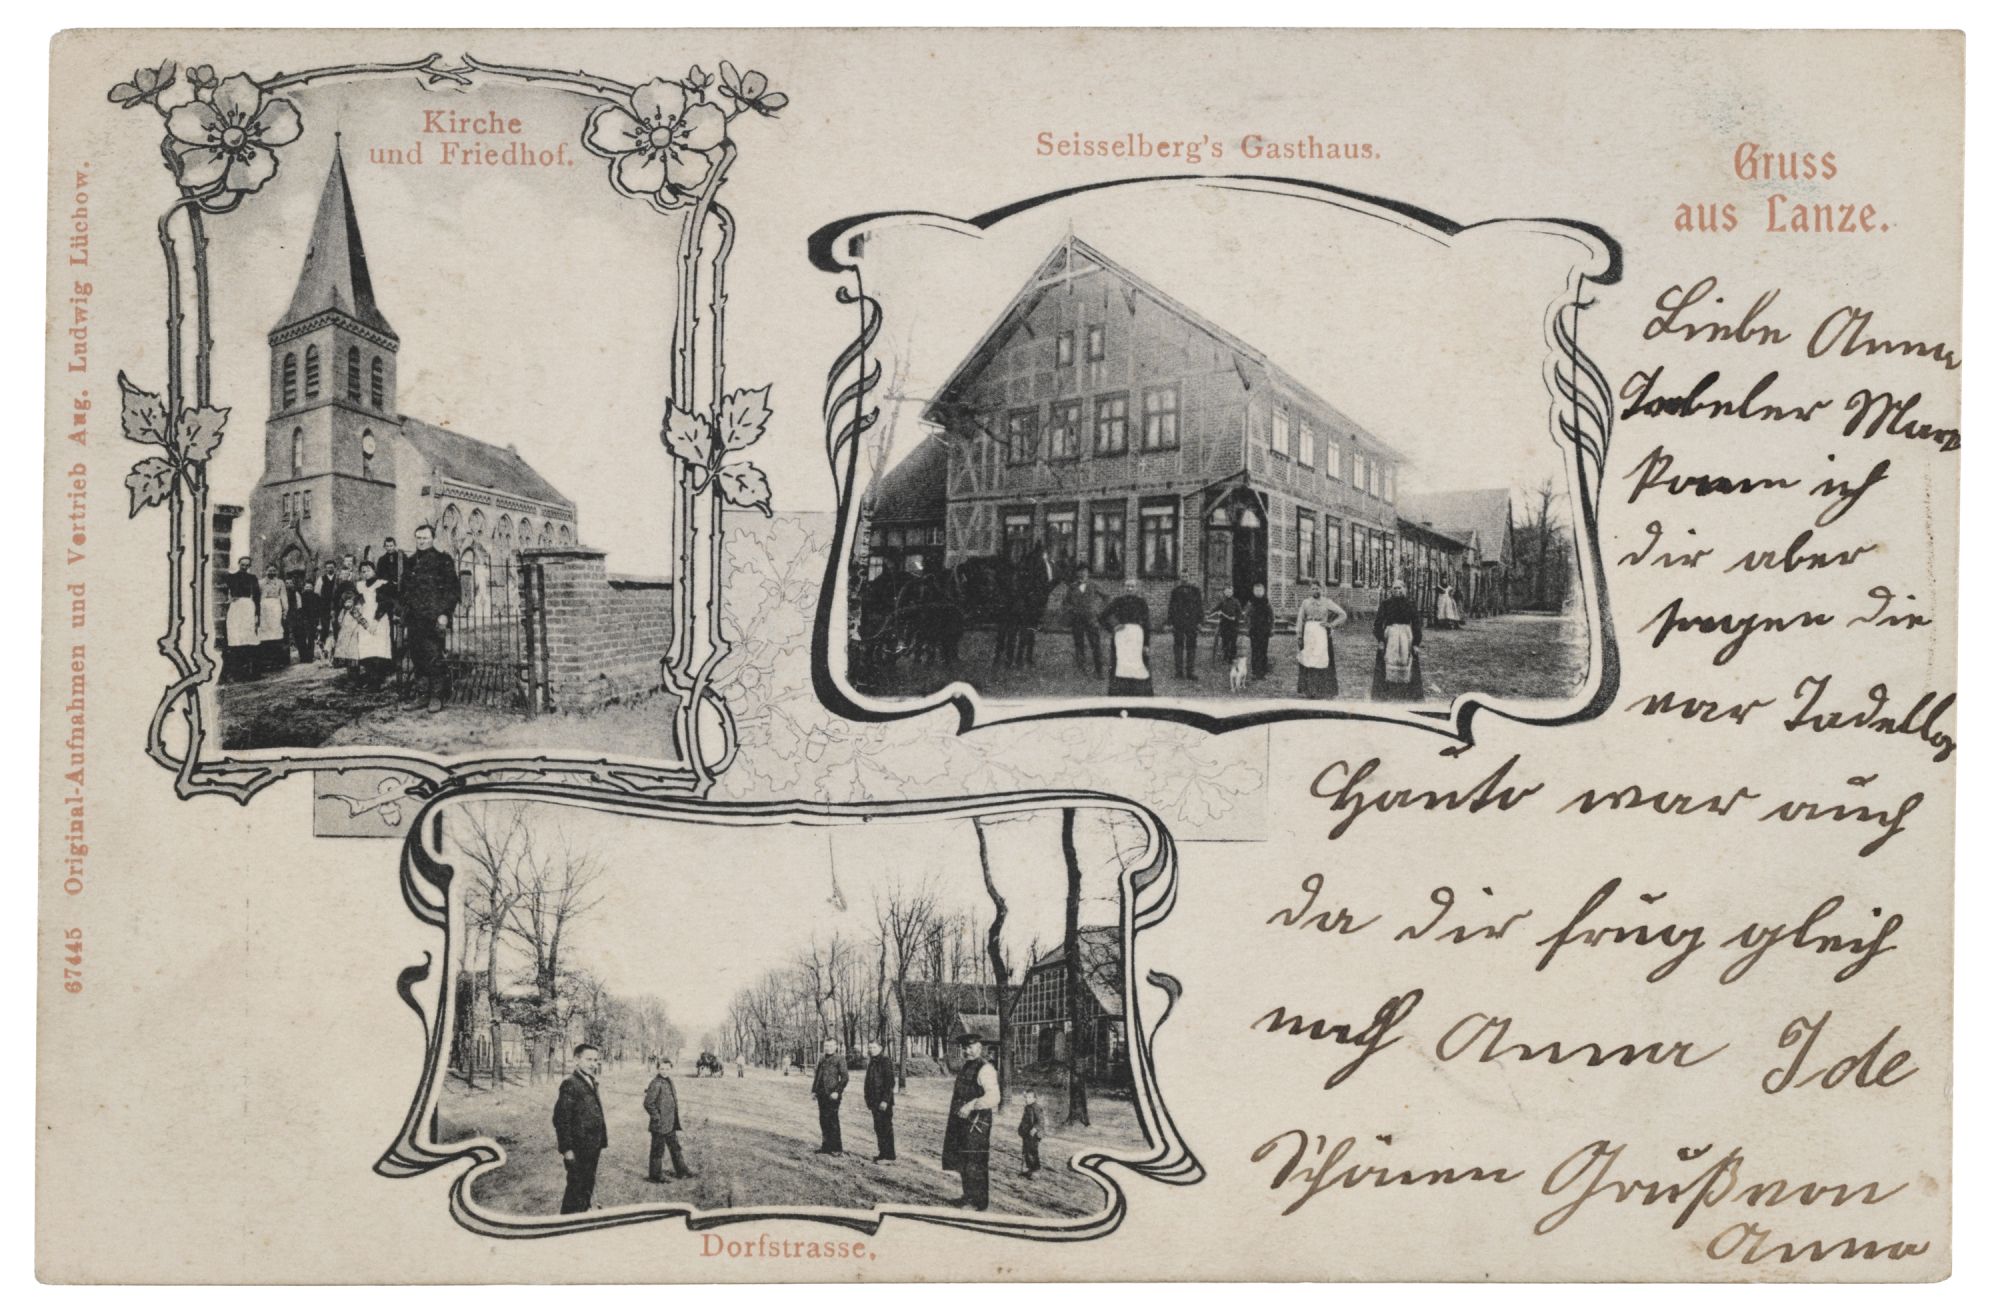 Kirche
und Friedhof.
Seisselberg's Gasthaus.
Gruss
aus Lanze.
67445 Original-Aufnahmen und Vertrieb Aug. Ludwig Lüchow.
Dorfstrasse.
Liebe Anna
kann ich
dir aber
sagen die
war Tadellos
Heute war auch
da dir frug gleich
nach Anna Ide
Schönen Gruß von
Anna